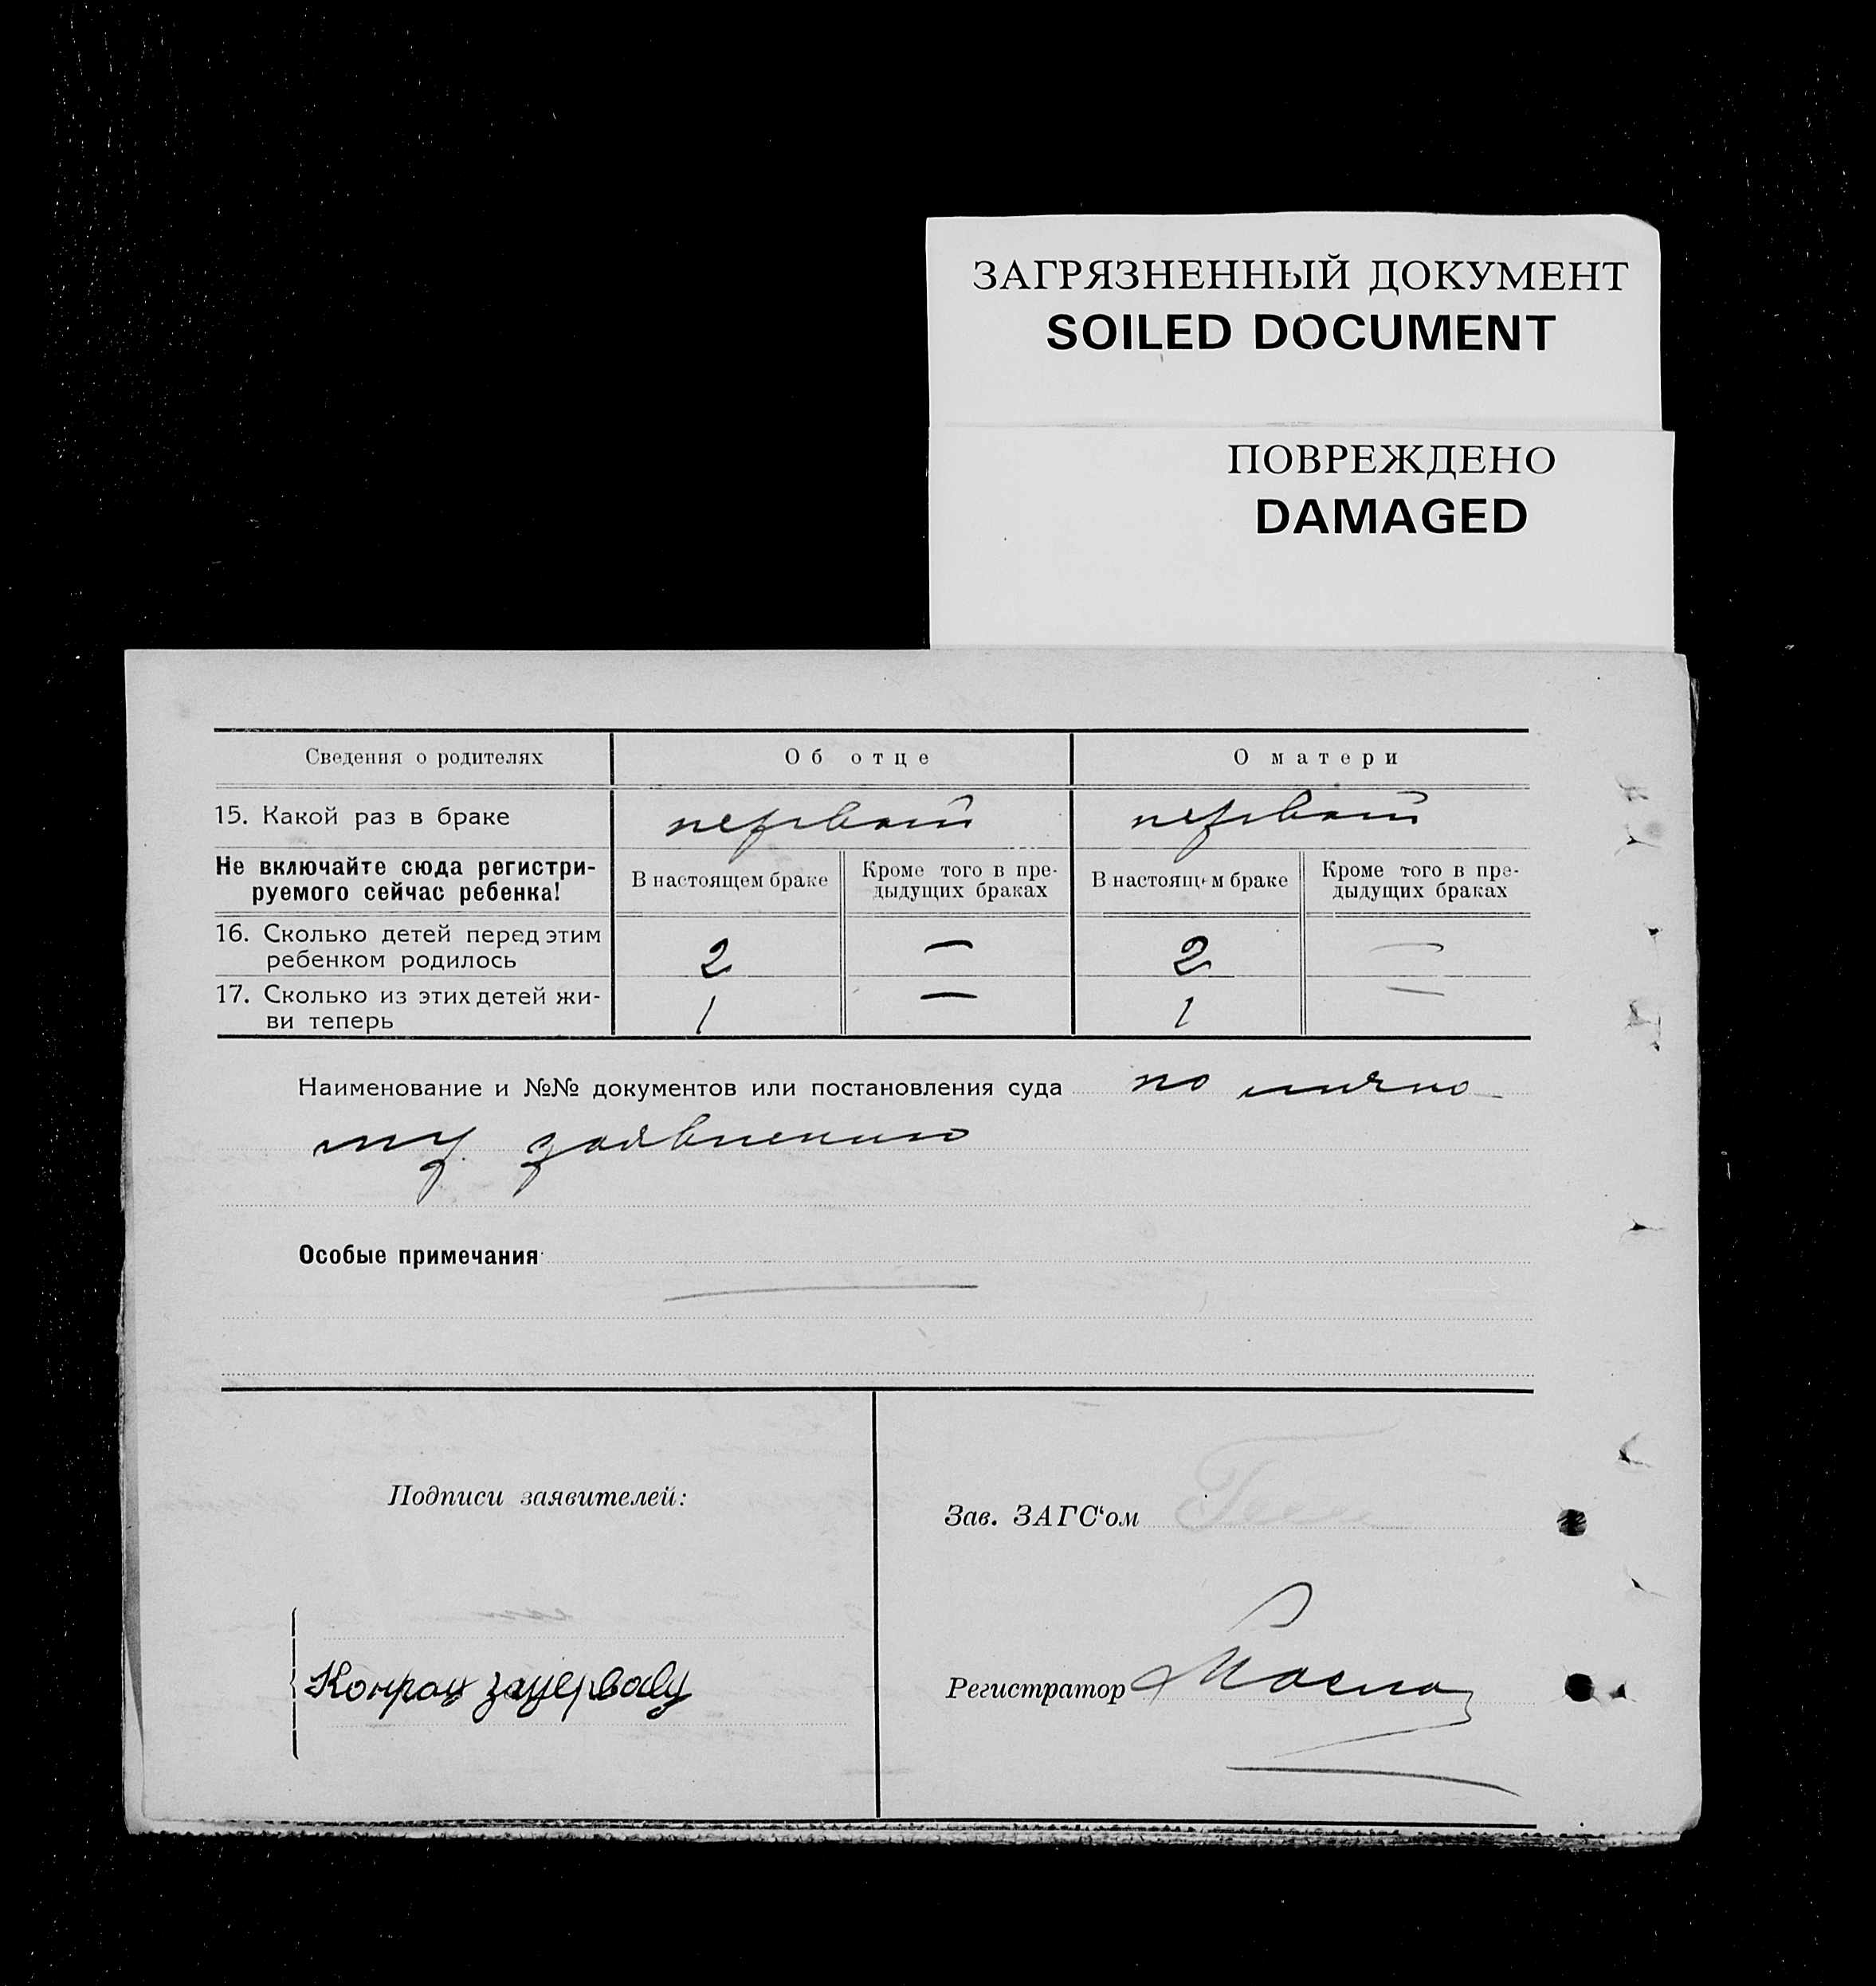 ЗАГРЯЗНЕННЫЙ ДОКУМЕНТ
SOILED DOCUMENT
ПОВРЕЖДЕНО
DAMAGED
Сведения о родителях Об отце О матери
15. Какой раз в браке первый первый
Не включайте сюда регистри-
руемого сейчас ребенка!
В настоящем браке
Кроме того в пре-
дыдущих браках
В настоящем браке
Кроме того в пре-
дыдущих браках
16. Сколько детей перед этим
ребенком родилось 2 — 2 —
17. Сколько из этих детей жи-
ви теперь 1 — 1 —
Наименование и №№ документов или постановления суда по лично
му заявлению
Особые примечания
Подписи заявителей:
Зав. ЗАГС'ом
Конрад
Регистратор